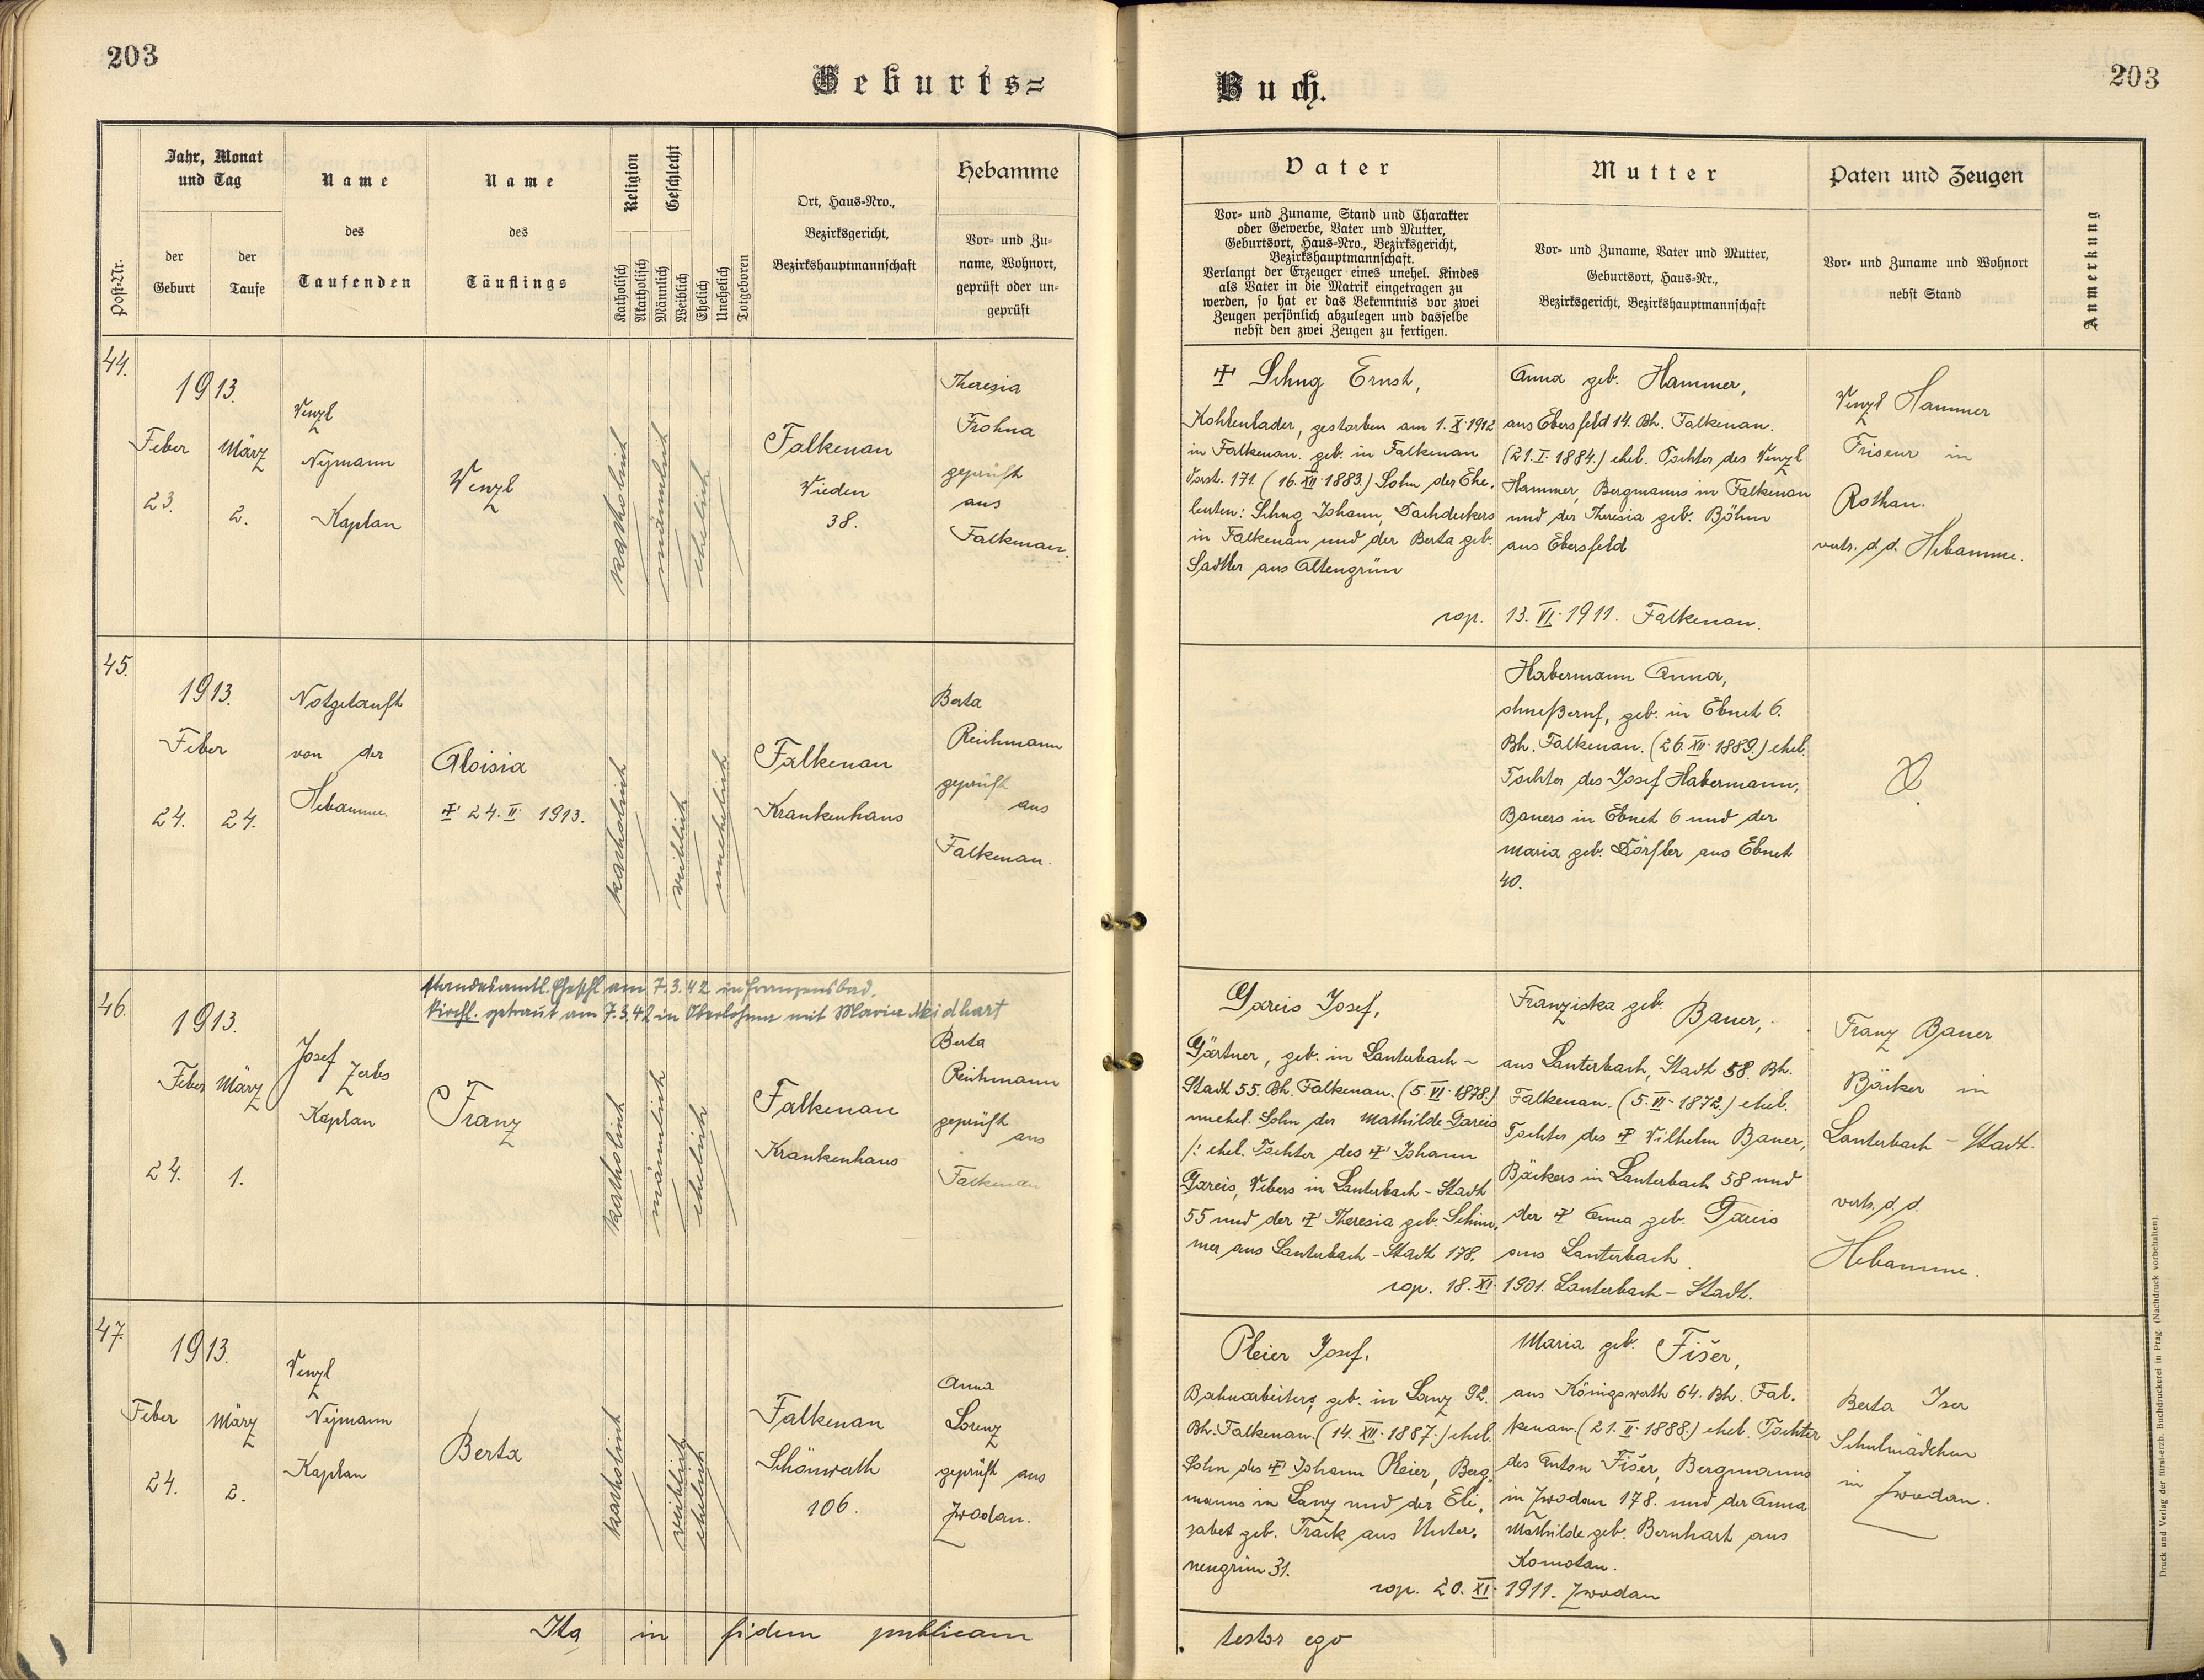 203
Geburts=
Buch.
203
Post-Nr.
Jahr, Monat
und Tag
der
Geburt
der
Taufe
Name
des
Taufenden
Name
des
Täuflings
Religion
Geschlecht
Katholisch
Akatholisch
Männlich
Weiblich
Ehelich
Unehelich
Totgeboren
Ort, Haus-Nro.,
Bezirksgericht,
Bezirkshauptmannschaft
Hebamme
Vor- und Zu-
name, Wohnort,
geprüft oder un-
geprüft
Vater
Vor- und Zuname, Stand und Charakter
oder Gewerbe, Vater und Mutter,
Geburtsort, Haus-Nro., Bezirksgericht,
Bezirkshauptmannschaft.
Verlangt der Erzeuger eines unehel. Kindes
als Vater in die Matrik eingetragen zu
werden, so hat er das Bekenntnis vor zwei
Zeugen persönlich abzulegen und dasselbe
nebst den zwei Zeugen zu fertigen.
Mutter
Vor- und Zuname, Vater und Mutter,
Geburtsort, Haus-Nr.,
Bezirksgericht, Bezirkshauptmannschaft
Paten und Zeugen
Vor- und Zuname und Wohnort
nebst Stand
Anmerkung
44.
1913.
Feber
23.
März
2.
Wenzl
Nejmann
Kaplan
Wenzl
katholisch
männlich
ehelich
Falkenau
Wieden
38.
Theresia
Frohna
geprüft
aus
Falkenau.
Ernst,
Kohlenlader, gestorben am 1. X. 1912
in Falkenau. geb. in Falkenau
Vorst. 171. (16. XII. 1883.) Sohn der Ehe-
leuten: Johann, Dachdeckers
in Falkenau und der Berta geb.
Sadtler aus Altengrün
cop. 13. VI. 1911. Falkenau.
Anna geb. Hammer,
aus Ebersfeld 14. Bh. Falkenau.
(21. I. 1884.) ehel. Tochter des Wenzl
Hammer, Bergmanns in Falkenau
und der Theresia geb. Böhm
aus Ebersfeld
Wenzl Hammer
Friseur in
Rothau.
vertr. d. d. Hebamme.
45.
1913.
Feber
24.
24.
Notgetauft
von der
Hebamme.
Aloisia
✝ 24. II 1913.
katholisch
weiblich
unehelich
Falkenau
Krankenhaus
Berta
Reichmann
geprüft
aus
Falkenau.
Habermann Anna,
ohne Beruf, geb. in Ebnet 6.
Bh. Falkenau. (26. XII. 1889.) ehel.
Tochter des Josef Habermann,
Bauers in Ebnet 6 und der
Maria geb. Dörfler aus Ebnet
40.
46.
standesamtl. am 7.3.42 in Franzensbad.
kirchl. getraut am 7.3.42 in Oberlohma mit Maria Neidhart
1913.
Feber
24.
März
1.
Josef
Zerbs
Kaplan
Franz
katholisch
männlich
ehelich
Falkenau
Krankenhaus
Berta
Reichmann
geprüft
aus
Falkenau
Gareis Josef,
Gärtner, geb. in Lauterbach -
Stadt 55. Bh. Falkenau. (5. VI. 1878.)
unehel. Sohn der Mathilde Gareis
/: ehel. Tochter des ✝ Johann
Gareis, Webers in Lauterbach - Stadt
55 und der ✝ Theresia geb. Schim-
mer aus Lauterbach - Stadt 178.
cop. 18. XI. 1901. Lauterbach - Stadt.
Franziska geb. Bauer,
aus Lauterbach, Stadt 58. Bh.
Falkenau. (5. VI. 1872.) ehel.
Tochter des ✝ Wilhelm Bauer,
Bäckers in Lauterbach 58 und
der ✝ Anna geb. Gareis
aus Lauterbach
Franz Bauer
Bäcker in
Lauterbach - Stadt.
vertr. d. d.
Hebamme.
47.
1913.
Feber
24.
März
2.
Wenzl
Nejmann
Kaplan
Berta
katholisch
weiblich
ehelich
Falkenau
Schönwerth
106.
Anna
Lorenz
geprüft aus
Zwodau.
Pleier Josef,
Bahnarbeiters, geb. in Lanz 92.
Bh. Falkenau. (14. XII. 1887.) ehel.
Sohn des ✝ Johann Pleier, Berg-
manns in Lanz und der Eli-
sabet geb. Track aus Unter-
neugrün 31.
cop. 20. XI. 1911. Zwodau
Maria geb. Fišer,
aus Königswerth 64. Bh. Fal-
kenau. (21. II. 1888.) ehel. Tochter
des Anton Fišer, Bergmanns
in Zwodau 178. und der Anna
Mathilde geb. Bernhart aus
Komotau.
Berta Iser
Schulmädchen
in Zwodau.
Ita in fidem publicam
testor ego
Druck und Verlag der fürst-erzb. Buchdruckerei in Prag. (Nachdruck vorbehalten).